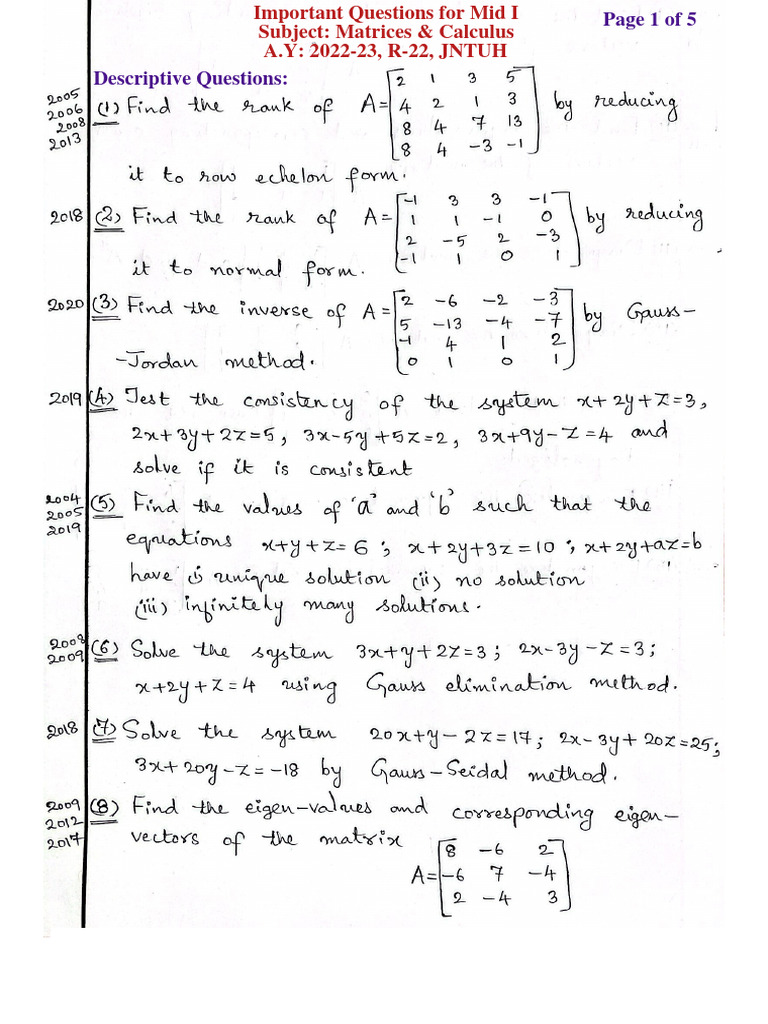 Important Questions for Mid I
Subject: Matrices & Calculus
A.Y: 2022-23, R-22, JNTUH
Page 1 of 5
Descriptive Questions:
2005
2006
2008
2013
(1) Find the rank of A= [2 1 3 5
4 2 1 3
8 4 7 13
8 4 -3 -1] by reducing
it to row echelon form.
2018 (2) Find the rank of A= [-1 3 3 -1
1 1 -1 0
2 -5 2 -3
-1 1 0 1] by reducing
it to normal form.
2020 (3) Find the inverse of A= [2 -6 -2 -3
5 -13 -4 -7
-1 4 1 2
0 1 0 1] by Gauss-
-Jordan method.
2019 (4) Test the consistency of the system x+2y+z=3,
2x+3y+2z=5, 3x-5y+5z=2, 3x+9y-z=4 and
solve if it is consistent
2004
2005
2019
(5) Find the values of 'a' and 'b' such that the
equations x+y+z=6; x+2y+3z=10; x+2y+az=b
have (i) unique solution (ii) no solution
(iii) infinitely many solutions.
2008
2009
(6) Solve the system 3x+y+2z=3; 2x-3y-z=3;
x+2y+z=4 using Gauss elimination method.
2018 (7) Solve the system 20x+y-2z=17; 2x-3y+20z=25;
3x+20y-z=-18 by Gauss-Seidal method.
2009
2012
2017
(8) Find the eigen-values and corresponding eigen-
vectors of the matrix
A= [8 -6 2
-6 7 -4
2 -4 3]